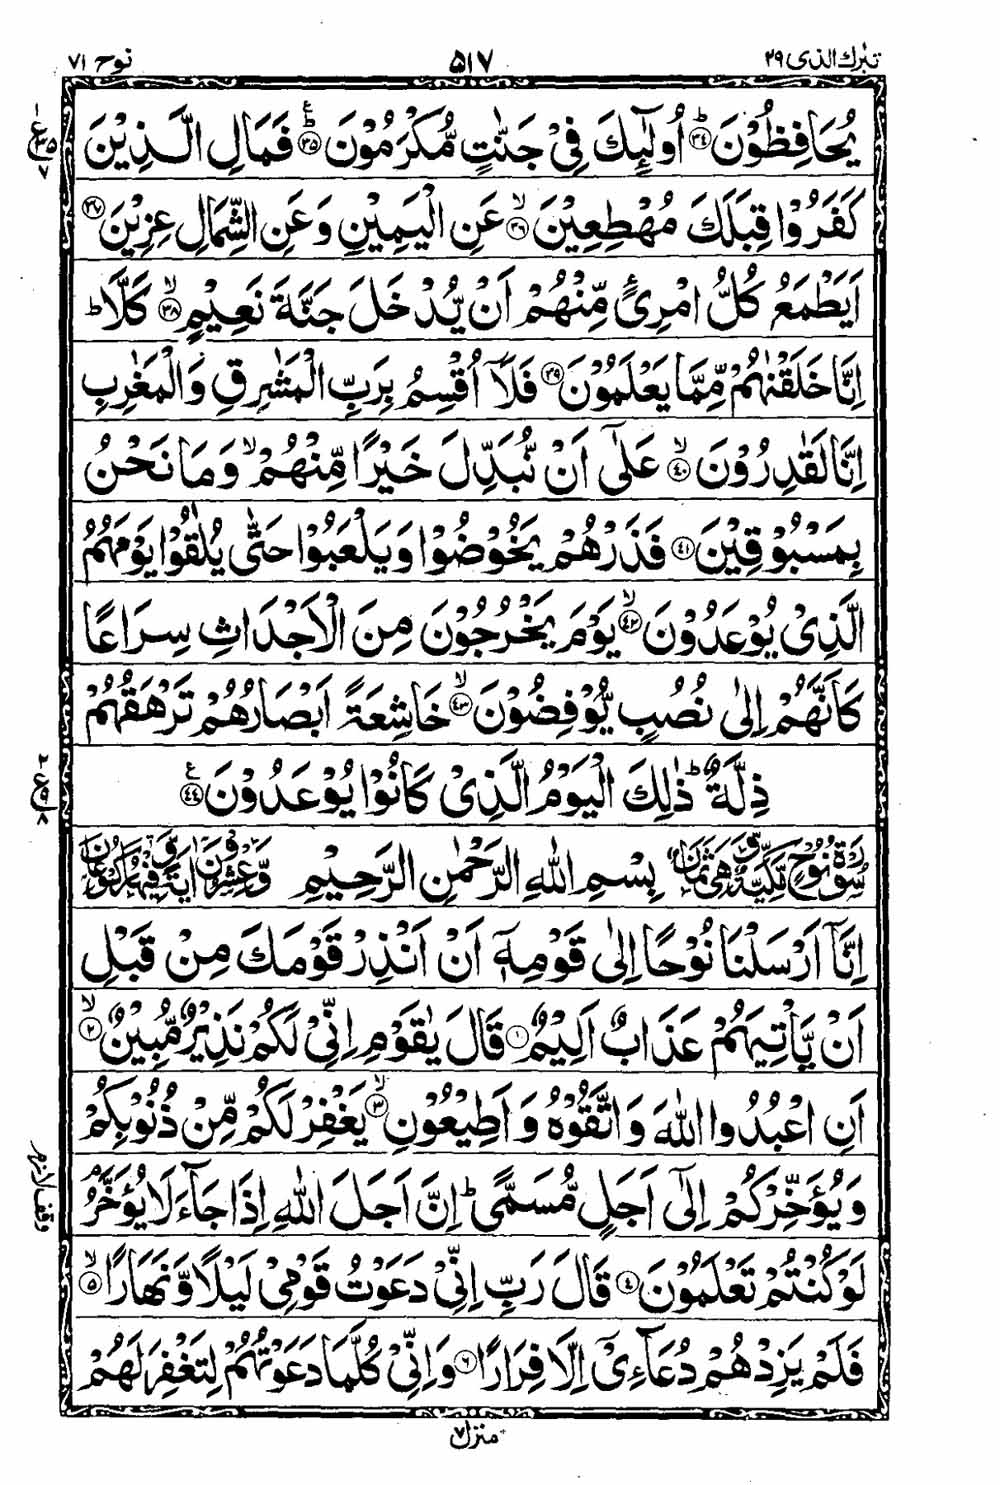 تبٰرك الذى ٢٩ ٥١٧ نوح ٧١
يُحَافِظُوْنَ ؕ﴿٣٤﴾ اُولٰٓئِكَ فِىْ جَنّٰتٍ مُّكْرَمُوْنَ ؕ﴿٣٥﴾ فَمَالِ الَّذِيْنَ
كَفَرُوْا قِبَلَكَ مُهْطِعِيْنَ ۙ﴿٣٦﴾ عَنِ الْيَمِيْنِ وَعَنِ الشِّمَالِ عِزِيْنَ ﴿٣٧﴾
اَيَطْمَعُ كُلُّ امْرِئٍ مِّنْهُمْ اَنْ يُّدْخَلَ جَنَّةَ نَعِيْمٍ ۙ﴿٣٨﴾ كَلَّا ؕ
اِنَّا خَلَقْنٰهُمْ مِّمَّا يَعْلَمُوْنَ ﴿٣٩﴾ فَلَاۤ اُقْسِمُ بِرَبِّ الْمَشٰرِقِ وَالْمَغٰرِبِ
اِنَّا لَقٰدِرُوْنَ ۙ﴿٤٠﴾ عَلٰٓى اَنْ نُّبَدِّلَ خَيْرًا مِّنْهُمْ ۙ وَمَا نَحْنُ
بِمَسْبُوْقِيْنَ ﴿٤١﴾ فَذَرْهُمْ يَخُوْضُوْا وَيَلْعَبُوْا حَتّٰى يُلٰقُوْا يَوْمَهُمُ
الَّذِىْ يُوْعَدُوْنَ ۙ﴿٤٢﴾ يَوْمَ يَخْرُجُوْنَ مِنَ الْاَجْدَاثِ سِرَاعًا
كَاَنَّهُمْ اِلٰى نُصُبٍ يُّوْفِضُوْنَ ۙ﴿٤٣﴾ خَاشِعَةً اَبْصَارُهُمْ تَرْهَقُهُمْ
ذِلَّةٌ ؕ ذٰلِكَ الْيَوْمُ الَّذِىْ كَانُوْا يُوْعَدُوْنَ ﴿٤٤﴾
سُوْرَةُ نُوْحٍ مَّكِّيَّةٌ وَّهِىَ ثَمَانٍ بِسْمِ اللّٰهِ الرَّحْمٰنِ الرَّحِيْمِ وَّعِشْرُوْنَ اٰيَةً وَّفِيْهَا رُكُوْعَانِ
اِنَّاۤ اَرْسَلْنَا نُوْحًا اِلٰى قَوْمِهٖۤ اَنْ اَنْذِرْ قَوْمَكَ مِنْ قَبْلِ
اَنْ يَّاْتِيَهُمْ عَذَابٌ اَلِيْمٌ ﴿١﴾ قَالَ يٰقَوْمِ اِنِّىْ لَكُمْ نَذِيْرٌ مُّبِيْنٌ ۙ﴿٢﴾
اَنِ اعْبُدُوا اللّٰهَ وَاتَّقُوْهُ وَاَطِيْعُوْنِ ۙ﴿٣﴾ يَغْفِرْ لَكُمْ مِّنْ ذُنُوْبِكُمْ
وَيُؤَخِّرْكُمْ اِلٰٓى اَجَلٍ مُّسَمًّى ؕ اِنَّ اَجَلَ اللّٰهِ اِذَا جَآءَ لَا يُؤَخَّرُ ۘ
لَوْ كُنْتُمْ تَعْلَمُوْنَ ﴿٤﴾ قَالَ رَبِّ اِنِّىْ دَعَوْتُ قَوْمِىْ لَيْلًا وَّنَهَارًا ۙ﴿٥﴾
فَلَمْ يَزِدْهُمْ دُعَآءِىْۤ اِلَّا فِرَارًا ﴿٦﴾ وَاِنِّىْ كُلَّمَا دَعَوْتُهُمْ لِتَغْفِرَ لَهُمْ
منزل ٧
وقف لازم